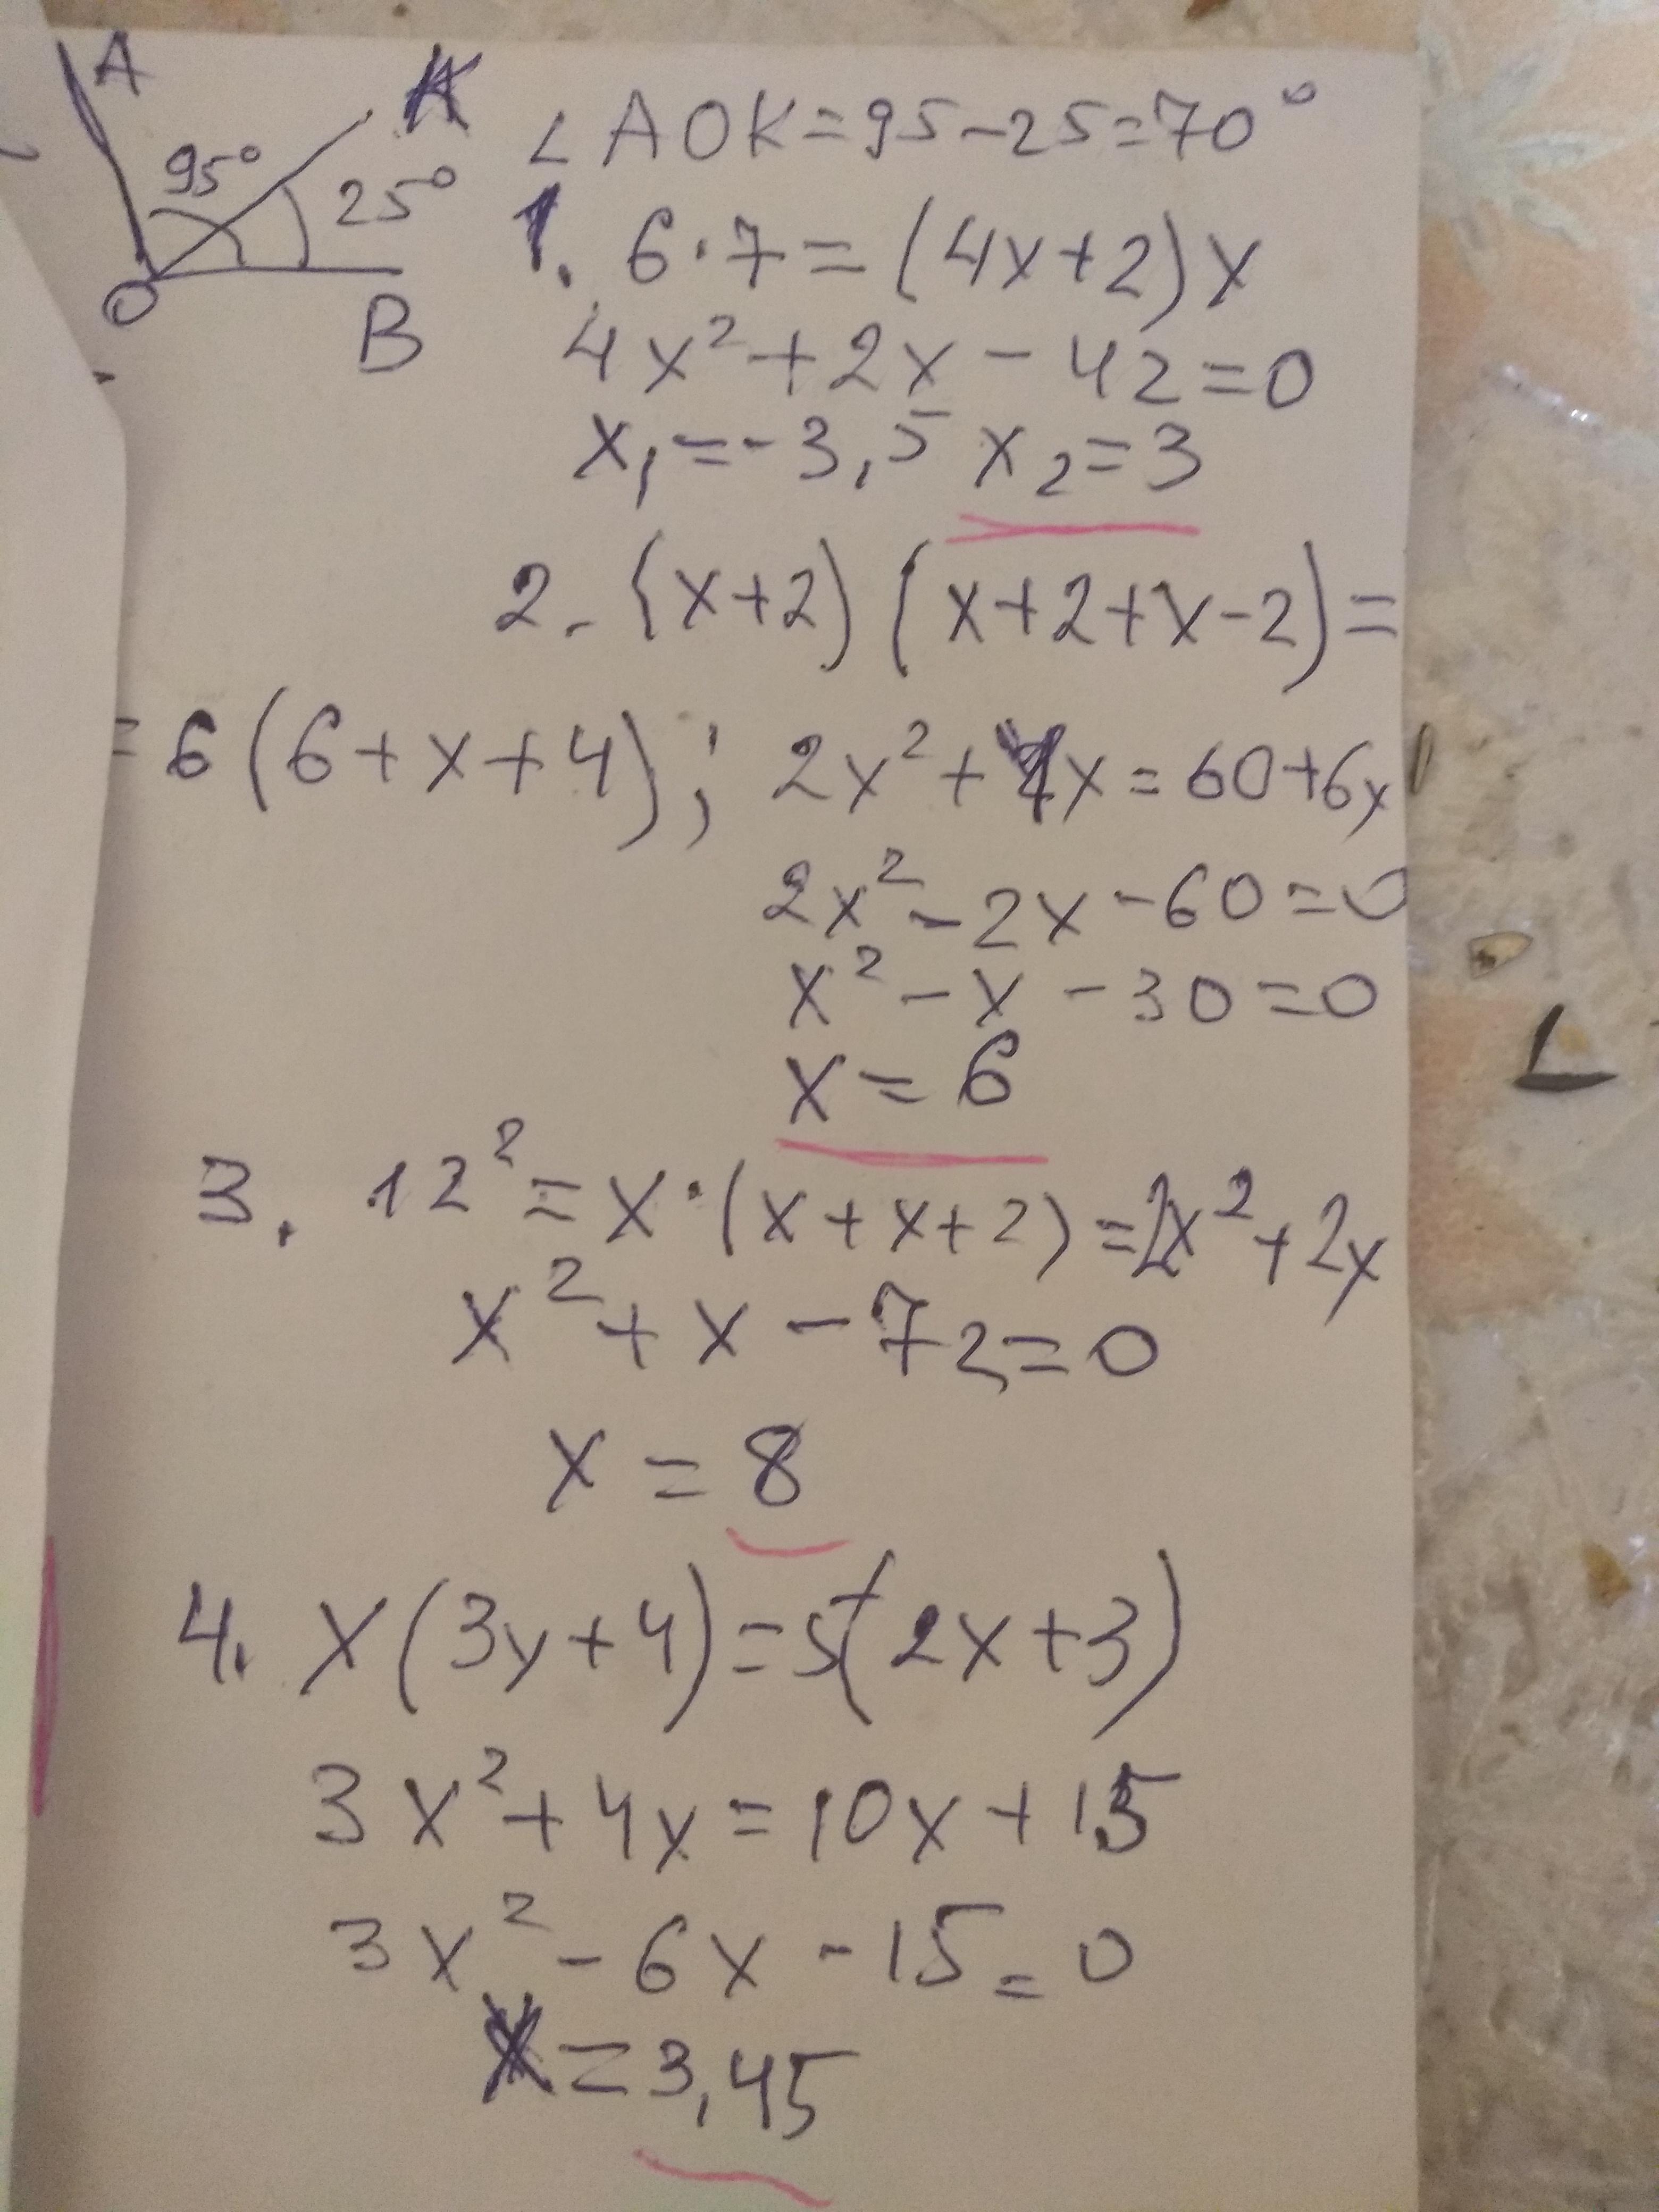 A K
95° 25°
O B
∠ AOK = 95 - 25 = 70°
1. 6 · 7 = (4x + 2) x
4x² + 2x - 42 = 0
x₁ = -3,5 x₂ = 3
2. (x + 2) (x + 2 + x - 2) =
= 6 (6 + x + 4) ; 2x² + 4x = 60 + 6x
2x² - 2x - 60 = 0
x² - x - 30 = 0
x = 6
3. 12² = x · (x + x + 2) = 2x² + 2x
x² + x - 72 = 0
x = 8
4. x (3x + 4) = 5 (2x + 3)
3x² + 4x = 10x + 15
3x² - 6x - 15 = 0
x = 3,45